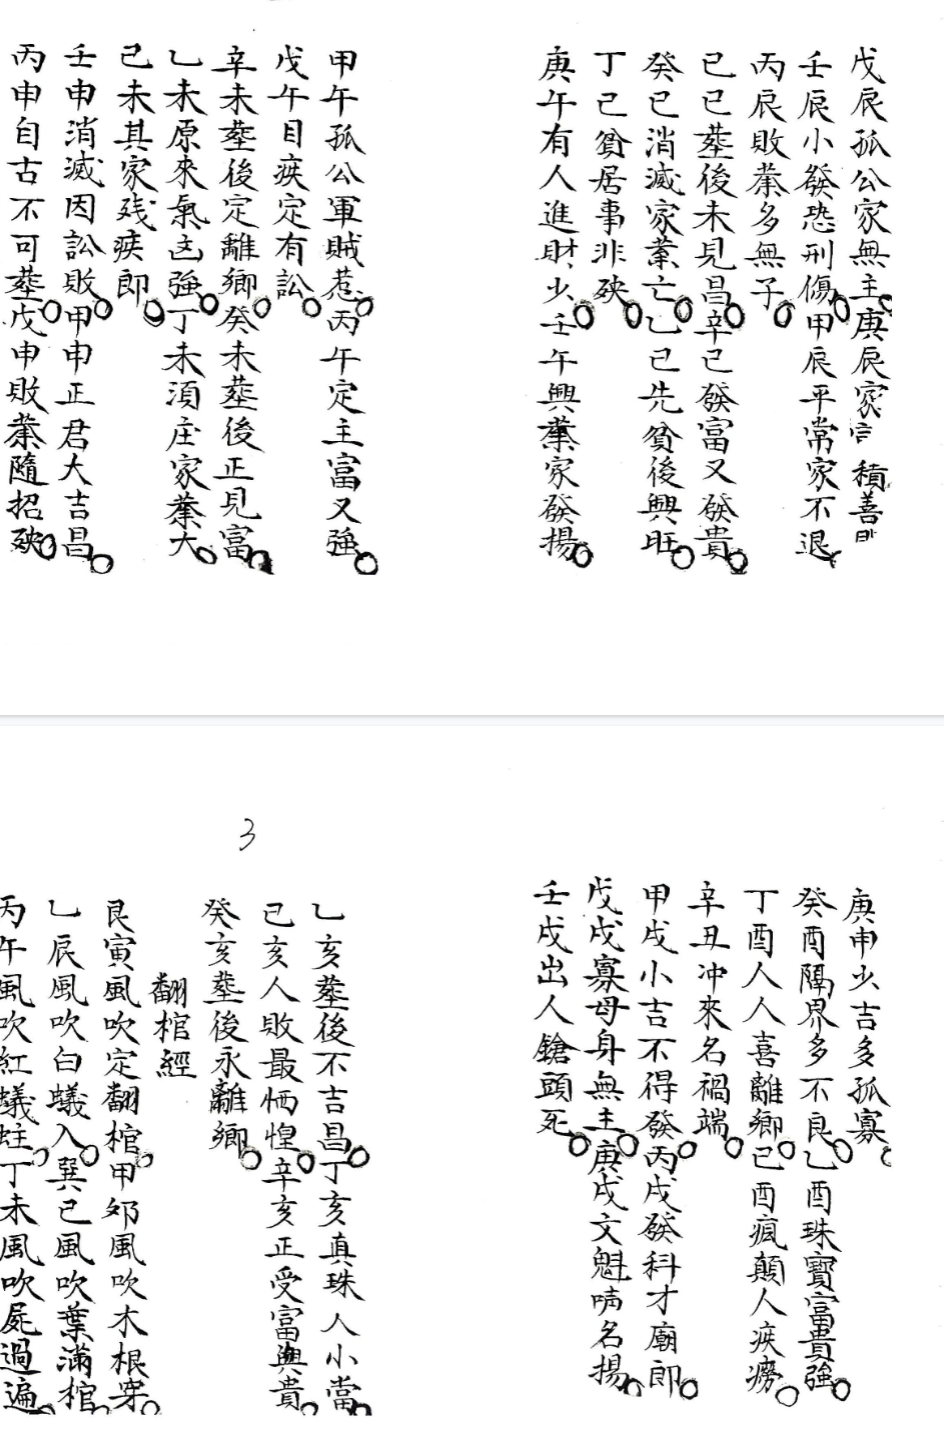 戊辰孤公家無主○庚辰家 積善
壬辰小發恐刑傷○甲辰平常家不退
丙辰敗業多無子○
己巳塟後未見昌○辛巳發富又發貴○
癸巳消滅家業亡○乙巳先貧後興旺○
丁巳貧居事非殃○
庚午有人進財少○壬午興業家發揚○
甲午孤公軍賊惹○丙午定主富又強○
戊午目疾定有訟○
辛未塟後定離鄉○癸未塟後正見富○
乙未原來氣凶強○丁未須庄家業大○
己未其家残疾即○
壬申消滅因訟敗○甲申正君大吉昌○
丙申自古不可塟○戊申敗業隨招殃○
庚申少吉多孤寡○
癸酉隔界多不良○乙酉珠寶富貴強○
丁酉人人喜離鄉○己酉瘋顛人疾癆○
辛丑冲來名禍端○
甲戌小吉不得發○丙戌發科才廟郎○
戊戌寡母身無主○庚戌文魁名揚○
壬戌出人鎗頭死○
3
乙亥塟後不吉昌○丁亥真珠人小當○
己亥人敗最恓惶○辛亥正受富與貴○
癸亥塟後永離鄉○
翻棺經
艮寅風吹定翻棺○甲卯風吹木根穿○
乙辰風吹白蟻入○巽巳風吹葉滿棺○
丙午風吹紅蟻蛀○丁未風吹屍過遍○